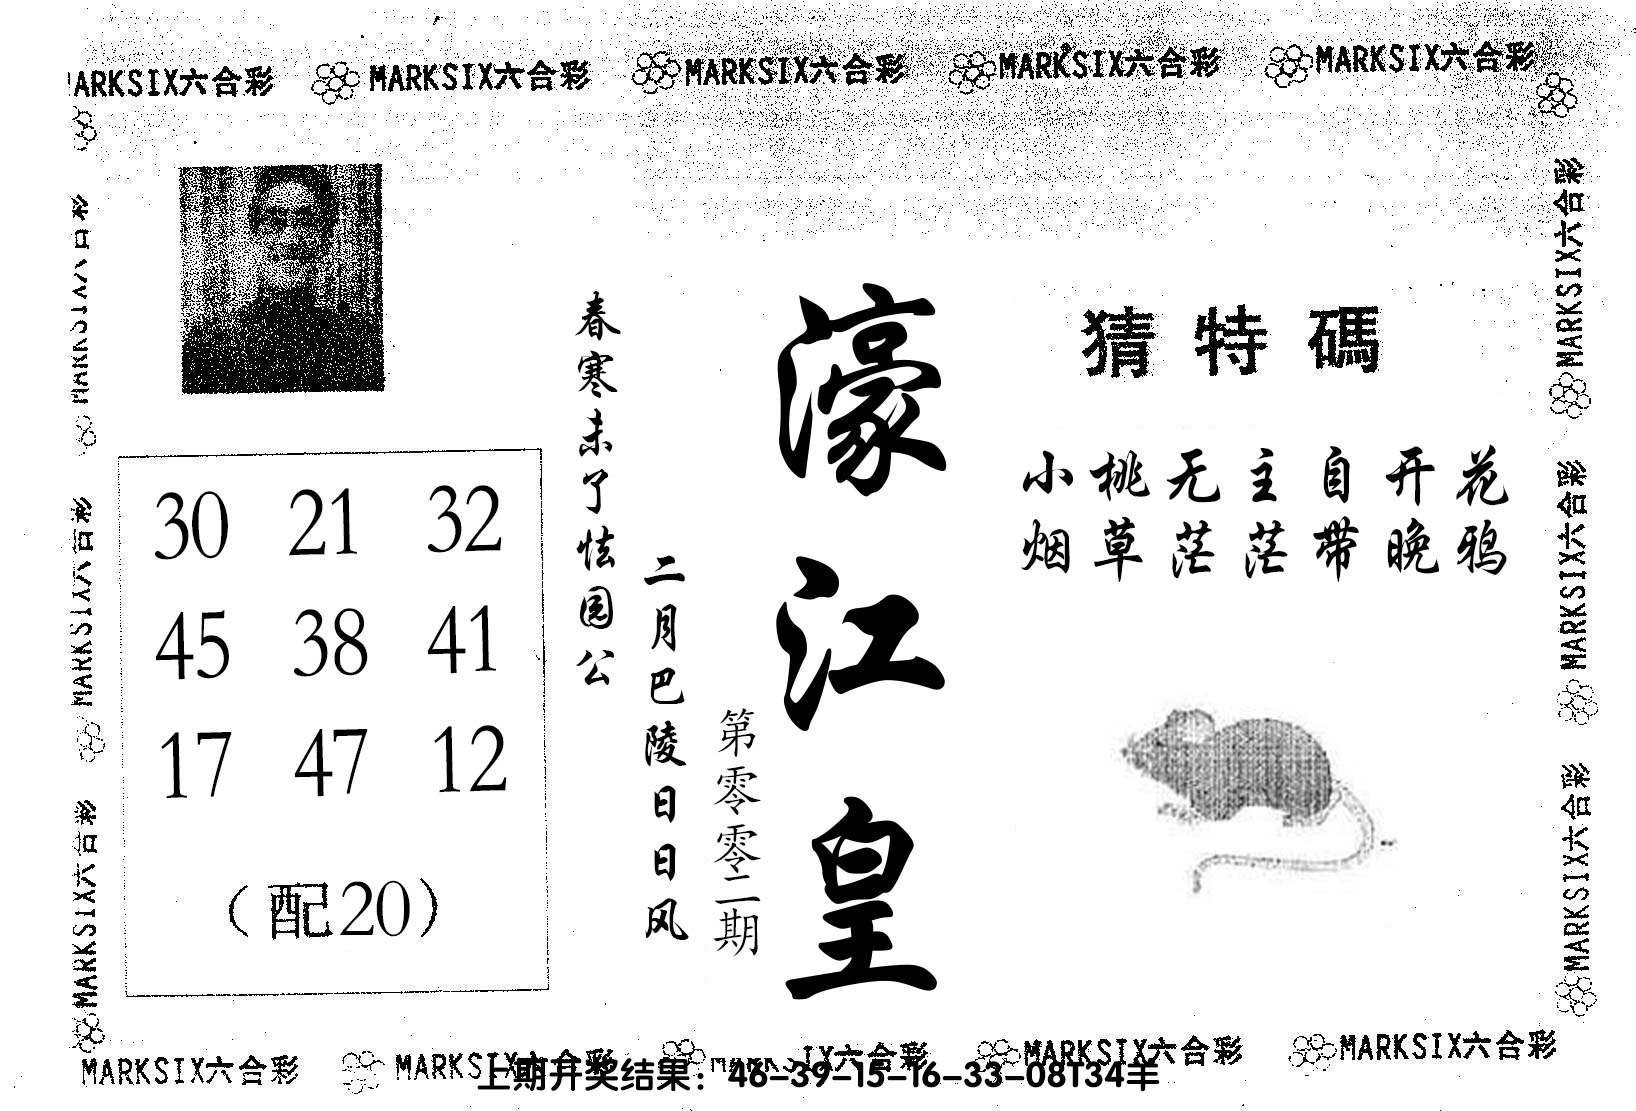 MARKSIX六合彩 MARKSIX六合彩 MARKSIX六合彩 MARKSIX六合彩 MARKSIX六合彩
猜特碼
小桃无主自开花
烟草茫茫带晚鸦
濠江皇
第零零二期
二月巴陵日日风
春寒未了怯园公
30 21 32
45 38 41
17 47 12
（配20）
MARKSIX六合彩
MARKSIX六合彩
MARKSIX六合彩
MARKSIX六合彩
MARKSIX六合彩
MARKSIX六合彩
MARKSIX六合彩 MARKSIX六合彩 MARKSIX六合彩 MARKSIX六合彩 MARKSIX六合彩
上期开奖结果：46-39-15-16-33-08T34羊